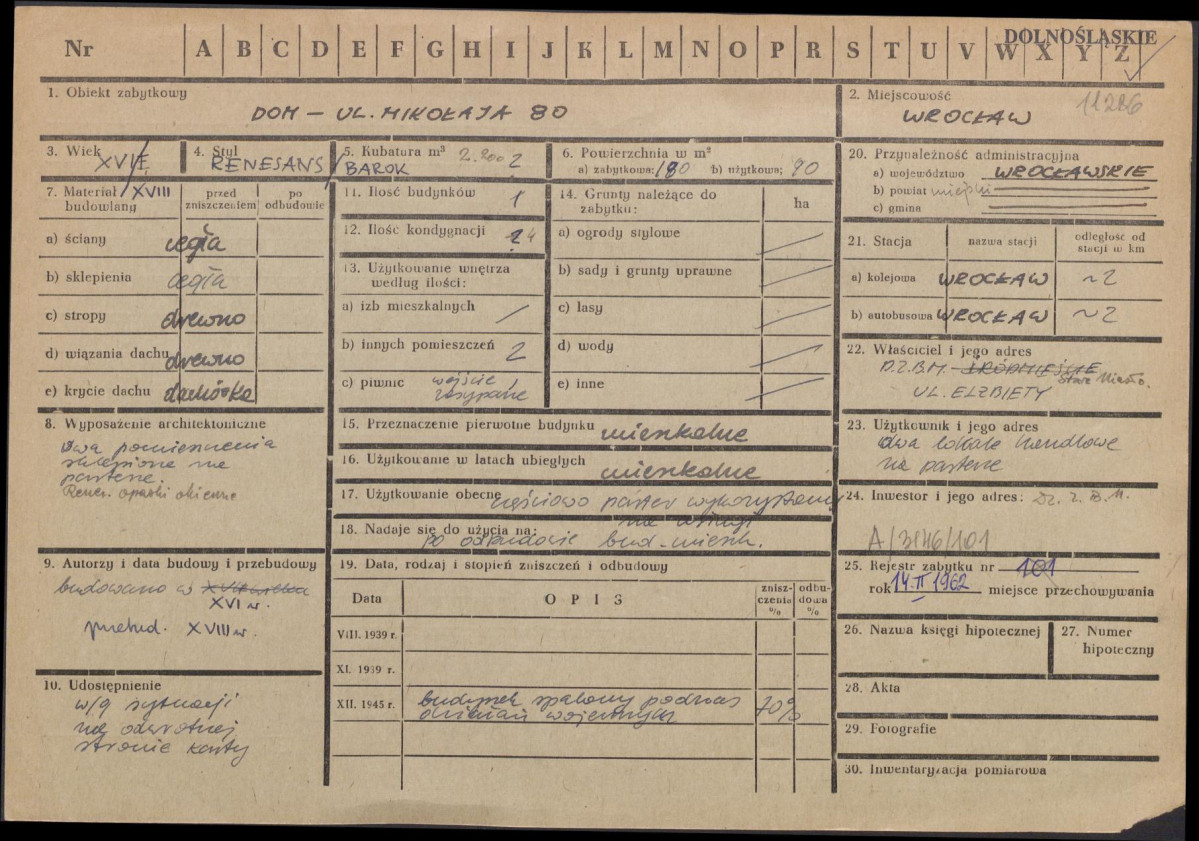 Nr A B C D E F G H I J K L M N O P R S T U V W X Y Z
DOLNOŚLĄSKIE
1. Obiekt zabytkowy
DOM – UL. MIKOŁAJA 80
2. Miejscowość
11286
WROCŁAW
3. Wiek
XVI
XVIII
4. Styl
RENESANS / BAROK
5. Kubatura m³
6. Powierzchnia w m²
a) zabytkowa: 180 b) użytkowa: 90
7. Materiał budowlany
przed zniszczeniem
po odbudowie
a) ściany cegła
b) sklepienia cegła
c) stropy drewno
d) wiązania dachu drewno
e) krycie dachu dachówka
8. Wyposażenie architektoniczne
dwa pomieszczenia
sklepione na
parterze.
Renes. opaski okienne
9. Autorzy i data budowy i przebudowy
budowano w
XVI w.
przebud. XVIII w.
10. Udostępnienie
w/g sytuacji
na odwrotnej
stronie karty
11. Ilość budynków 1
12. Ilość kondygnacji 4
13. Użytkowanie wnętrza
według ilości:
a) izb mieszkalnych
b) innych pomieszczeń 2
c) piwnic wejście
zasypane
14. Grunty należące do
zabytku:
ha
a) ogrody stylowe
b) sady i grunty uprawne
c) lasy
d) wody
e) inne
15. Przeznaczenie pierwotne budynku mieszkalne
16. Użytkowanie w latach ubiegłych mieszkalne
17. Użytkowanie obecne częściowo parter wykorzystany
na usługi
18. Nadaje się do użycia na:
po odbudowie bud. mieszk.
19. Data, rodzaj i stopień zniszczeń i odbudowy
Data
OPIS
znisz-
czenia
%
odbu-
dowa
%
VIII. 1939 r.
XI. 1939 r.
XII. 1945 r.
budynek spalony podczas
działań wojennych
70%
20. Przynależność administracyjna
a) województwo WROCŁAWSKIE
b) powiat miejski
c) gmina
21. Stacja
nazwa stacji
odległość od
stacji w km
a) kolejowa WROCŁAW ~2
b) autobusowa WROCŁAW ~2
22. Właściciel i jego adres
D.Z.B.M. – ŚRÓDMIEŚCIE
Stare Miasto.
UL. ELŻBIETY
23. Użytkownik i jego adres
dwa lokale handlowe
na parterze
24. Inwestor i jego adres: Dz. Z. B. M.
A/3146/101
25. Rejestr zabytku nr 101
rok 14.II 1962 miejsce przechowywania
26. Nazwa księgi hipotecznej
27. Numer
hipoteczny
28. Akta
29. Fotografie
30. Inwentaryzacja pomiarowa